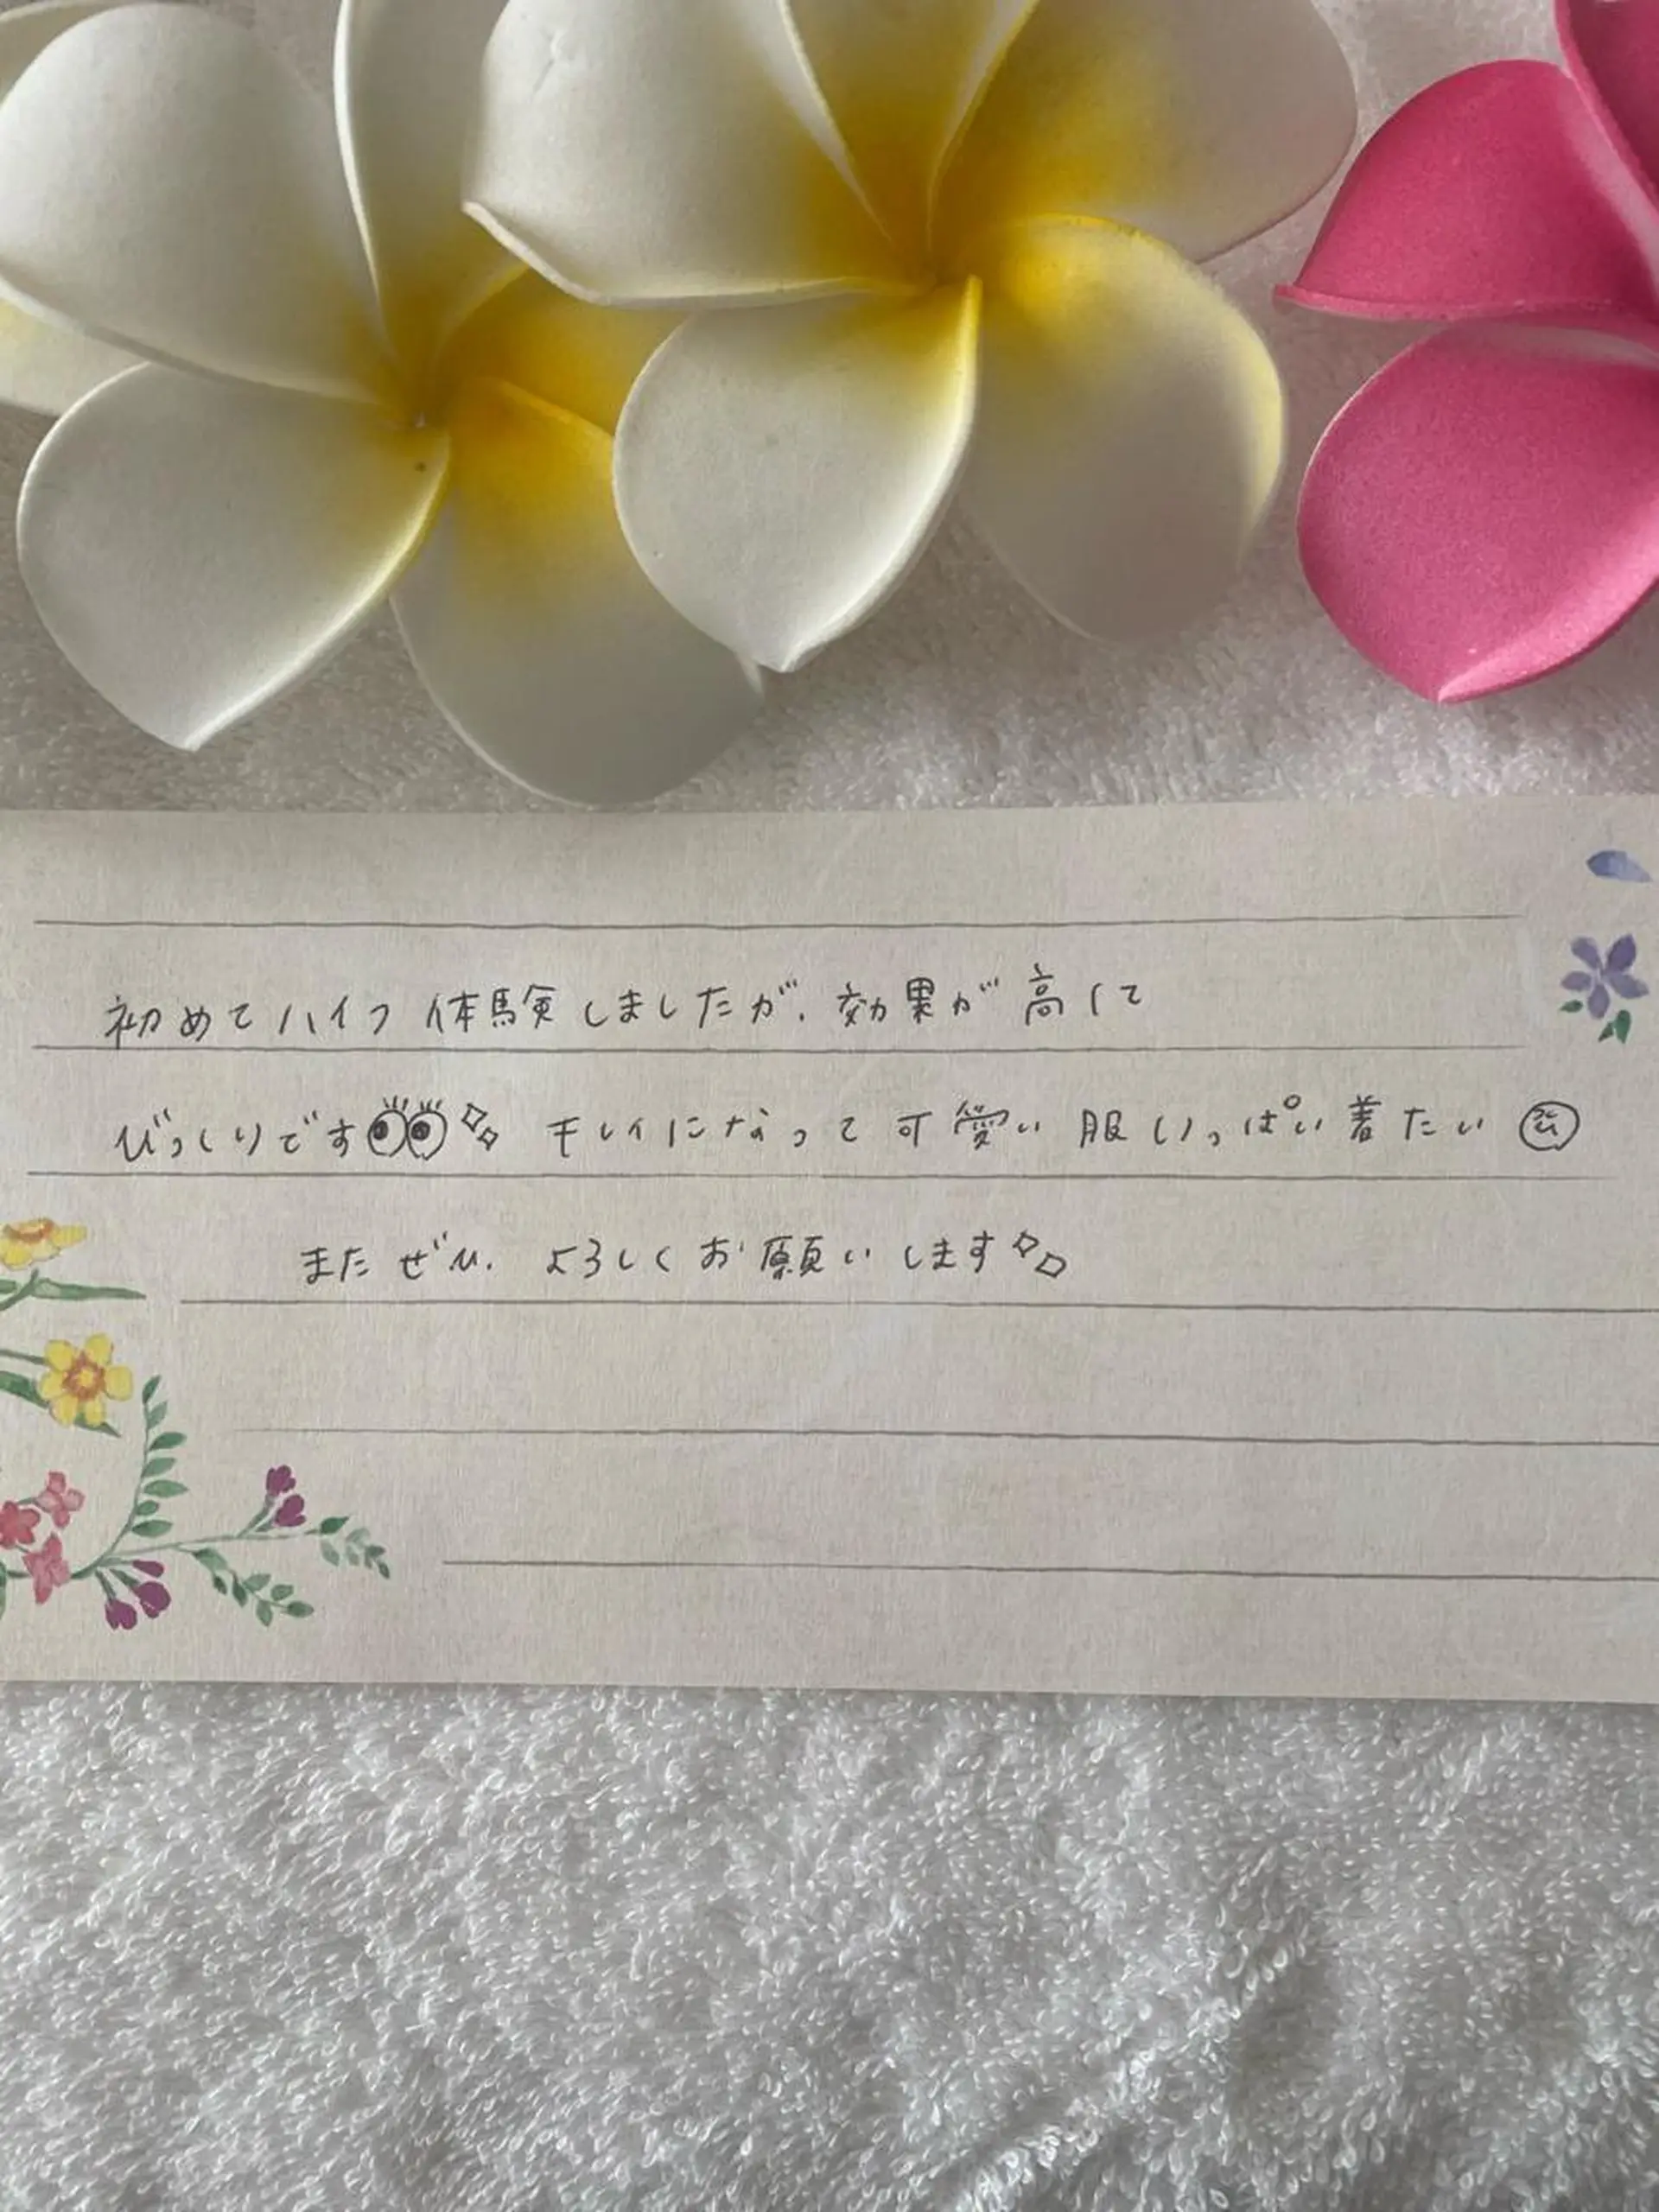 初めてハイフ体験しましたが、効果が高くて
びっくりです👀✨ キレイになって可愛い服いっぱい着たい
またぜひ、よろしくお願いします✨